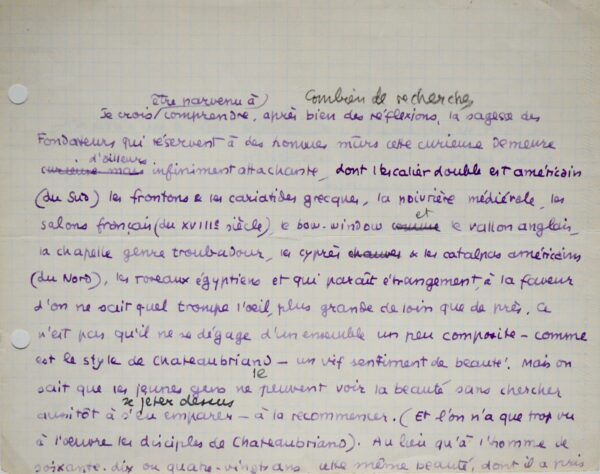 être parvenu à Combien de recherches
Je crois comprendre, après bien des réflexions, la sagesse des
Fondateurs qui réservent à des hommes mûrs cette curieuse Demeure
d'ailleurs
curieuse mais infiniment attachante, dont l'escalier double est américain
(du Sud) les frontons & les cariatides grecques, la poivrière médiévale, les
et
salons français (du XVIIIe siècle), le bow-window comme le vallon anglais,
la chapelle genre troubadour, les cyprès chauves & les catalpas américains
(du Nord), les roseaux égyptiens et qui paraît étrangement à la faveur
d'on ne sait quel trompe l'oeil, plus grande de loin que de près. Ce
n'est pas qu'il ne se dégage d'un ensemble un peu composite - comme
est le style de Chateaubriand - un vif sentiment de beauté. Mais on
le
sait que les jeunes gens ne peuvent voir la beauté sans chercher
se jeter dessus
aussitôt à s'en emparer - à la recommencer. (Et l'on n'a que trop vu
à l'oeuvre les disciples de Chateaubriand). Au lieu qu'à l'homme de
soixante-dix ou quatre-vingt ans, cette même beauté, dont il a pris